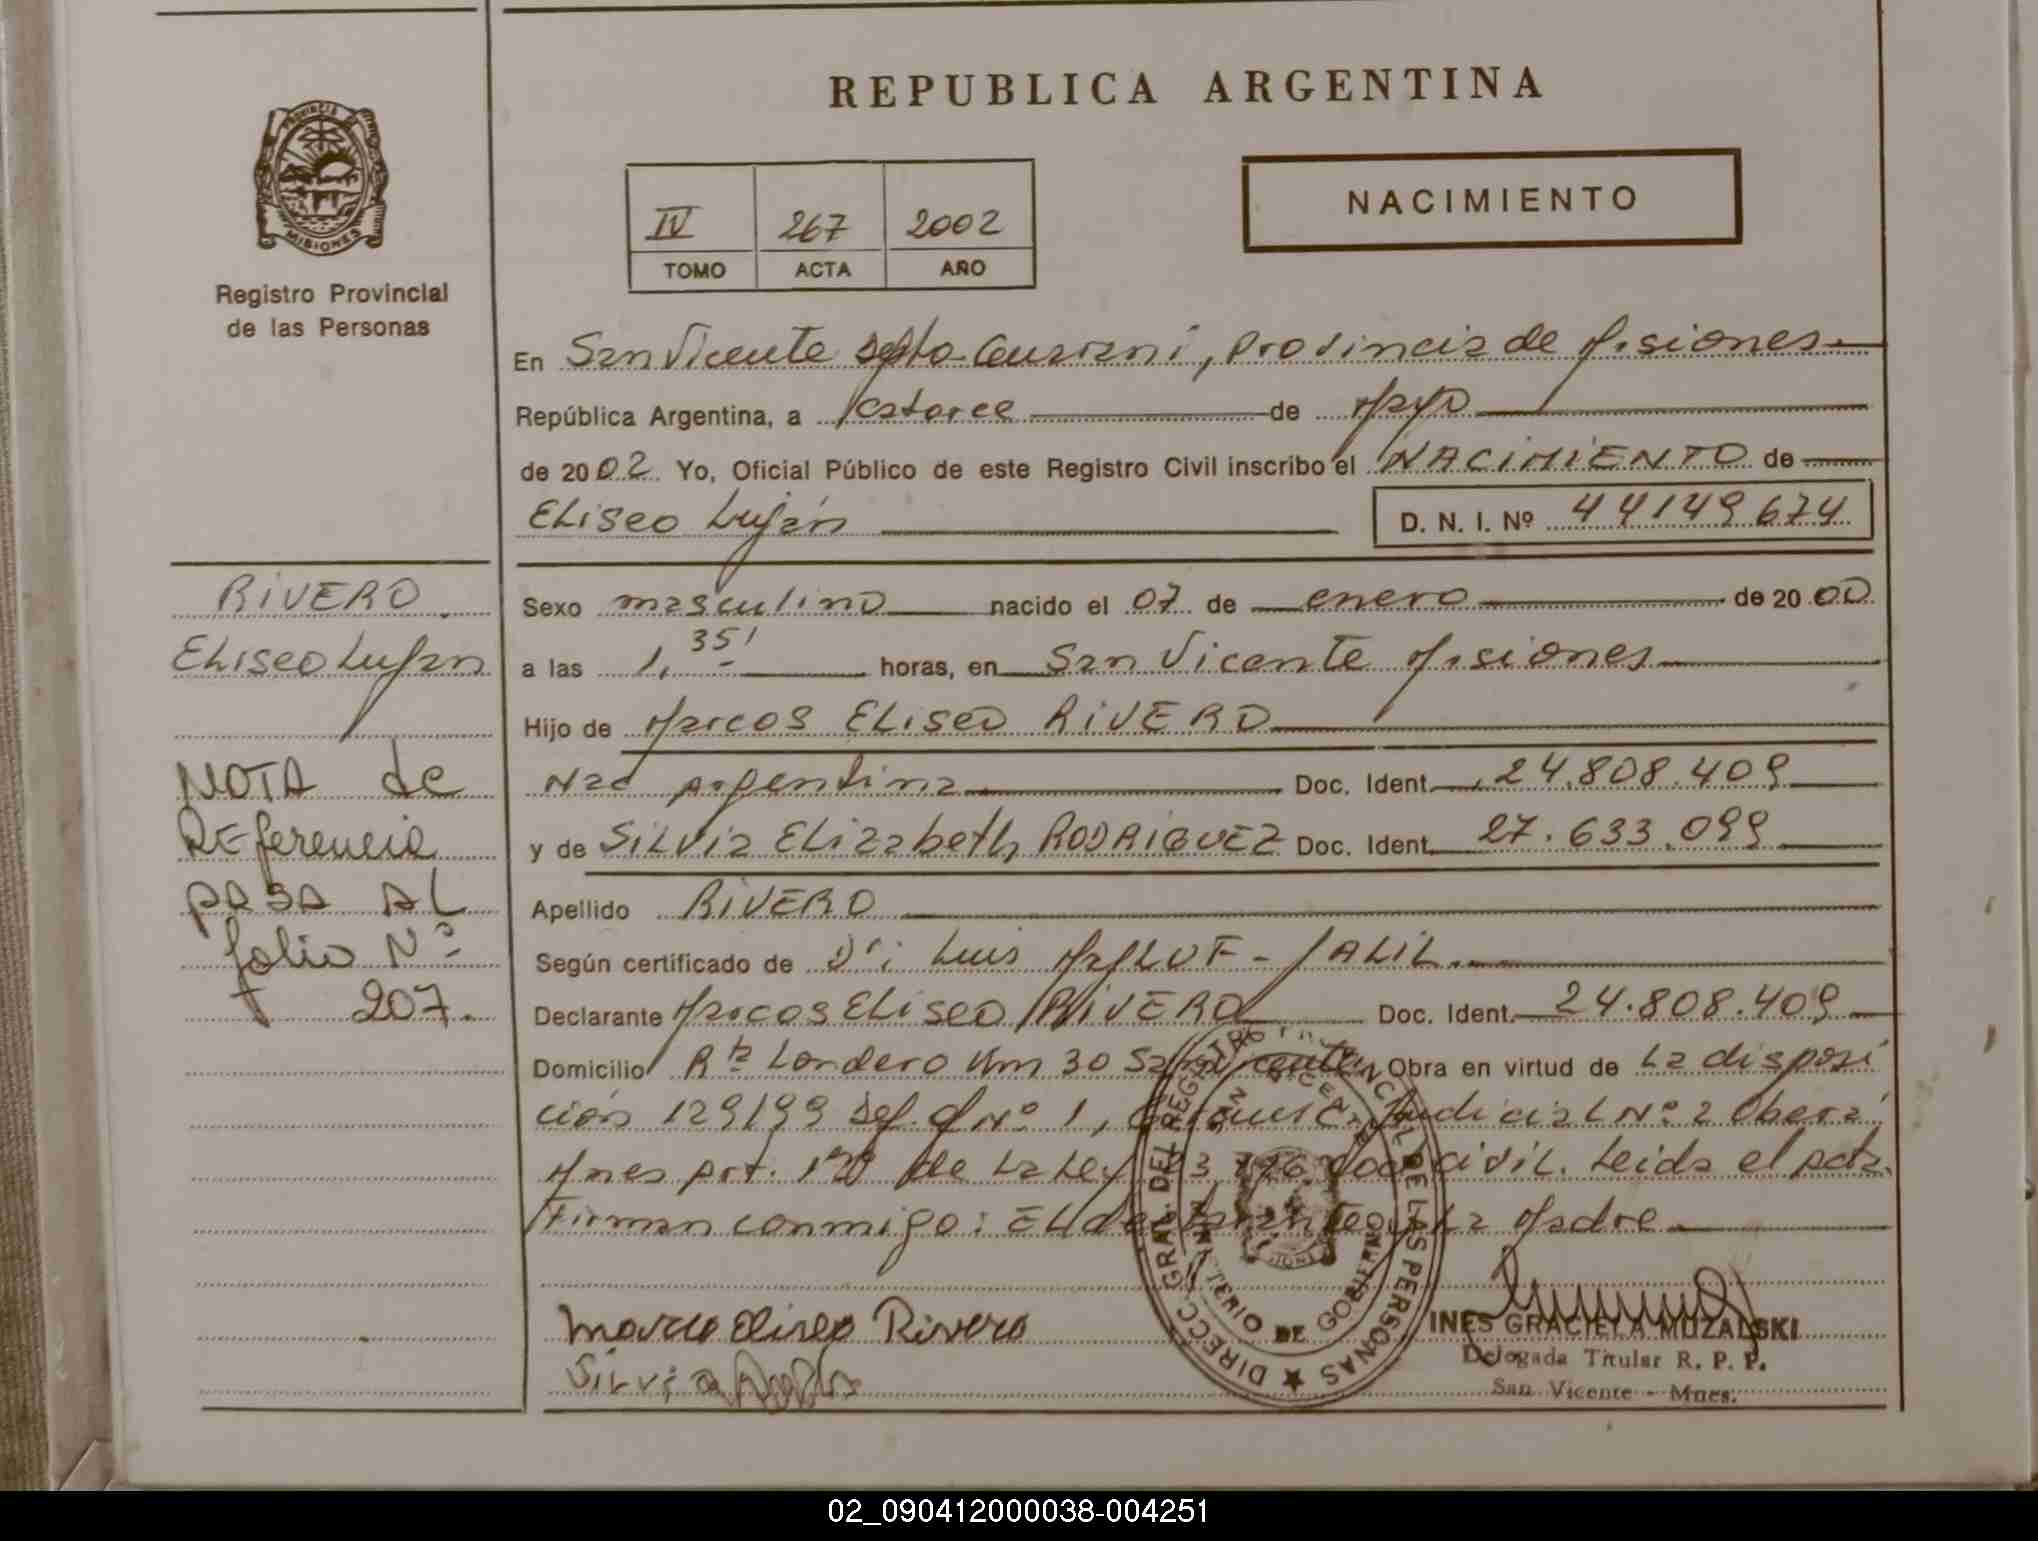 REPUBLICA ARGENTINA
PROVINCIA DE
MISIONES
Registro Provincial
de las Personas
IV 267 2002
TOMO ACTA AÑO
NACIMIENTO
En San Vicente Dpto. Guaraní, provincia de Misiones
República Argentina, a catorce de Mayo
de 2002 Yo, Oficial Público de este Registro Civil inscribo el NACIMIENTO de
Eliseo Luján D. N. I. Nº 44149674
RIVERO
Eliseo Luján
NOTA de
Referencia
PASA AL
folio Nº
207.
Sexo masculino nacido el 07 de enero de 2000
a las 1,35' horas, en San Vicente Misiones
Hijo de Marcos Eliseo RIVERO
Nac Argentina Doc. Ident. 24.808.409
y de Silvia Elizabeth RODRIGUEZ Doc. Ident. 27.633.099
Apellido RIVERO
Según certificado de Luis JALIL.
Declarante Marcos Eliseo RIVERO Doc. Ident. 24.808.409
Domicilio Rta Londero Km 30 San Vicente, Obra en virtud de La disposi
ción 129/99 Def. Of Nº 1, Judicial Nº 2 Oberá
Mnes Art. de La Ley civil. Leida el acta.
Firman conmigo: El declarante y La Madre
Marco Eliseo Rivero
Silvia
DIRECC. GRAL. DEL REGISTRO PROVINCIAL DE LAS PERSONAS
SAN VICENTE
MINISTERIO DE GOBIERNO
INES GRACIELA MUZALSKI
Delegada Titular R. P. P.
San Vicente - Mnes.
02_090412000038-004251